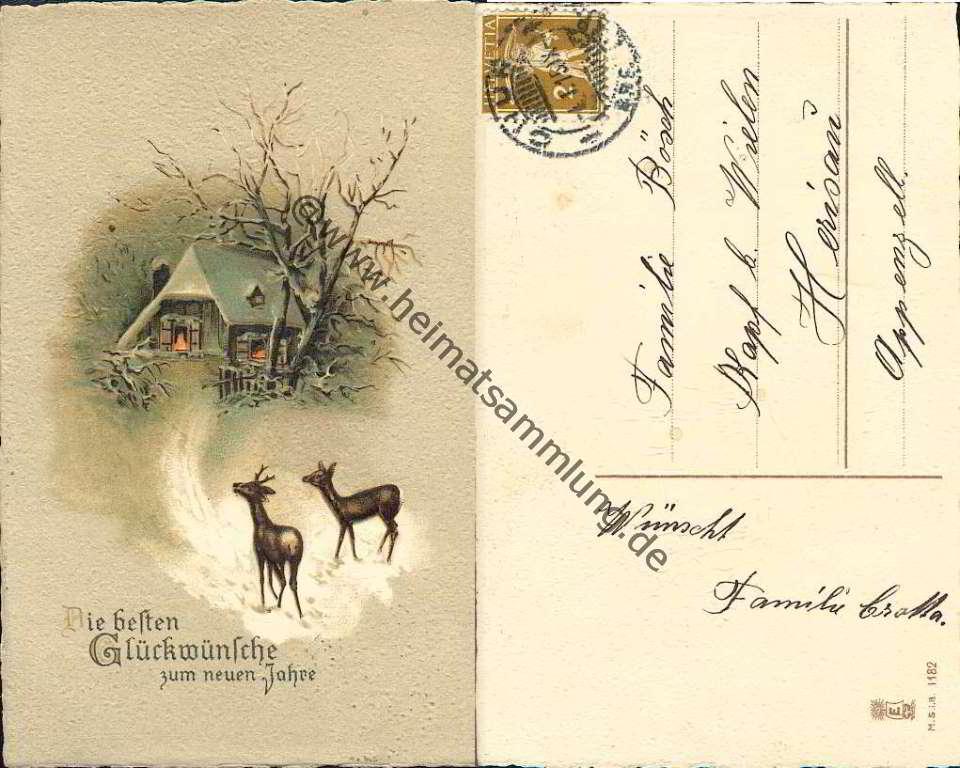 Die besten
Glückwünsche
zum neuen Jahre
©www.heimatsammlung.de
HELVETIA
2
Familie Bösch
Kapf b. Wielen
Herisau
Appenzell.
Wünscht
Familie Crotta.
E
M.S.i.B. 1182